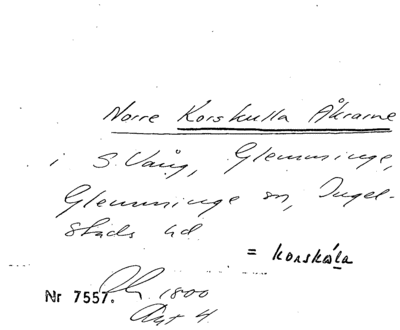 Norre Korskulla Åkrarne
i S. Vång, Glemminge,
Glemminge sn, Ingel-
stads hd
= korskåla
Nr 7557. 1800
Akt 4